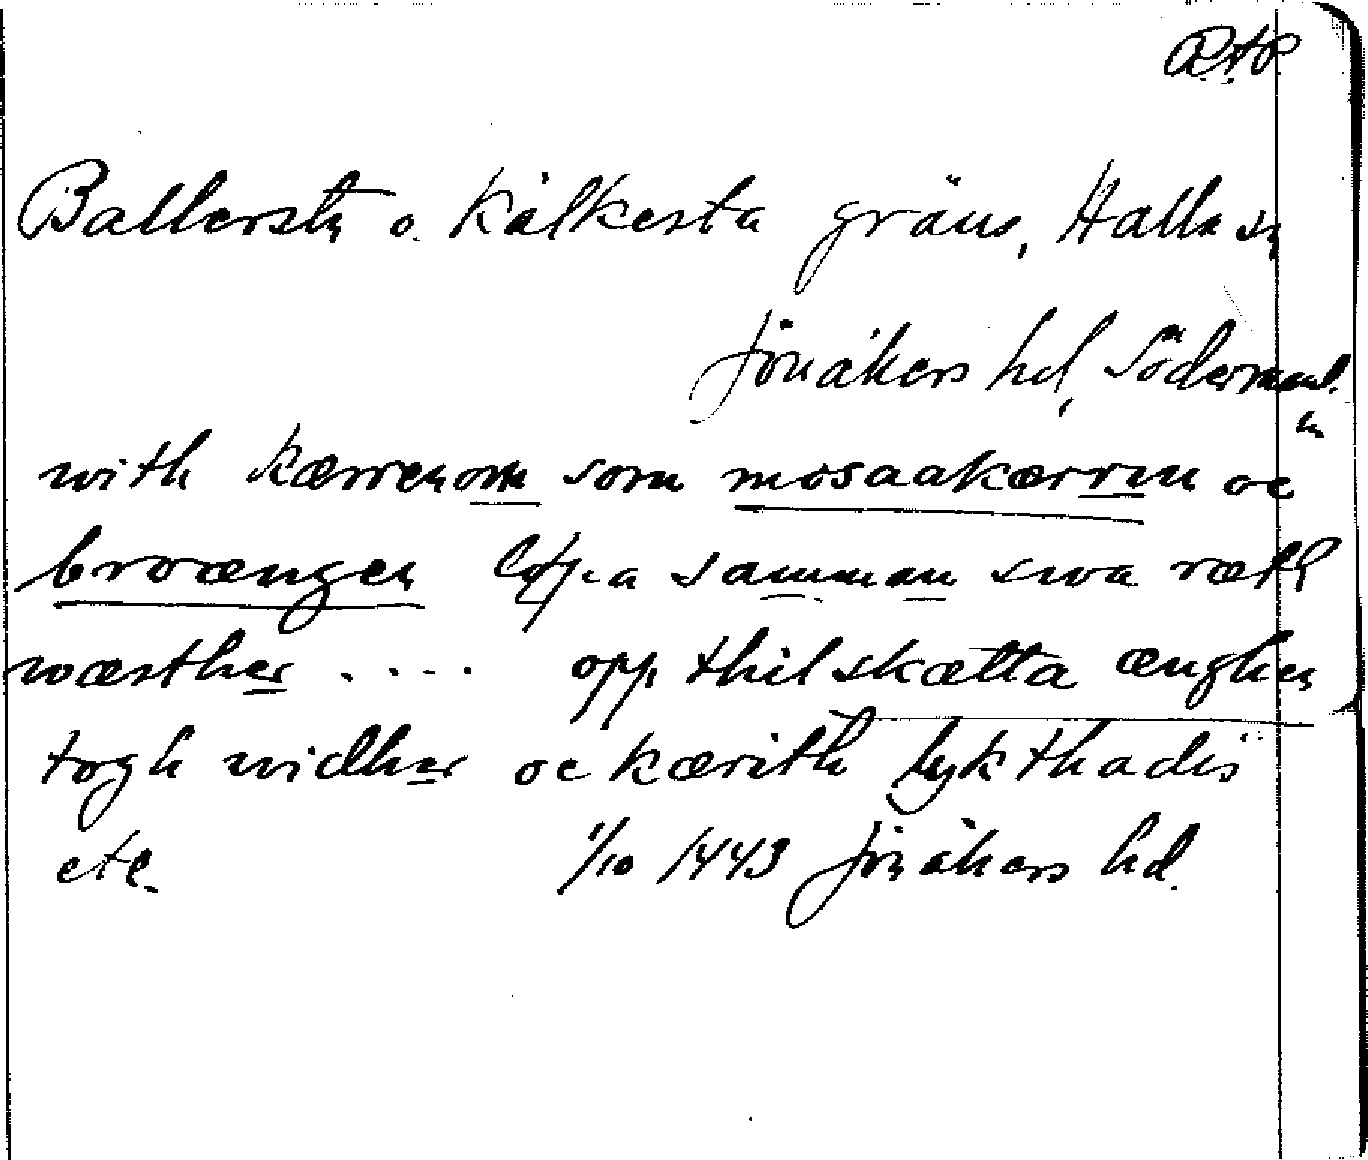 RAP
Ballersta o. Kalkesta gräns, Halla sn
Jönåkers hd, Södermanl.
with kærrenom som mosaakærrin oc
broængen løpa samman swa ræth
wæsther .... opp thil skætta ænghen
togh widher oc kærith lykthadis
etc. 1/10 1443 Jönåkers hd.